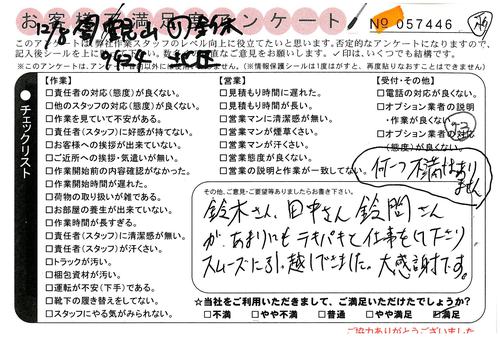 お客様満足度アンケート! No 057446
12/8
このアンケートは、弊社作業スタッフのレベル向上に役立てたいと思います。否定的なアンケートになりますので、
記入後シールを上に
印は、いくつでも結構です。
※このアンケートは、
(※情報保護シールは1度はがすと、再度貼りなおすことはできません)
チェックリスト
【作業】
□責任者の対応(態度)が良くない。
□他のスタッフの対応(態度)が良くない。
□作業を見ていて不安がある。
□責任者(スタッフ)に好感が持てない。
□お客様への挨拶が出来ていない。
□ご近所への挨拶・気遣いが無い。
□作業開始前の内容確認がなかった。
□作業開始時間が遅れた。
□荷物の取り扱いが雑である。
□お部屋の養生が出来ていない。
□作業時間が長すぎる。
□責任者(スタッフ)に清潔感が無い。
□責任者(スタッフ)が汗くさい。
□トラックが汚い。
□梱包資材が汚い。
□運転が不安(下手)である。
□靴下の履き替えをしてない。
□スタッフにやる気がみられない。
【営業】
□見積もり時間に遅れた。
□見積もり時間が長い。
□営業マンに清潔感が無い。
□営業マンが煙草くさい。
□営業マンが汗くさい。
□営業態度が良くない。
□営業の説明と作業が一致してない。
【受付・その他】
□電話の対応が良くない。
□オプション業者の説明
・作業が良くない。
□オプション業者の対応
(態度)が良くない。
何一つ不満はあり
ません
その他、ご意見・ご要望等ありましたらお書き下さい。
鈴木さん、田中さん 鈴岡さん
が、あまりにもテキパキと仕事をして下さり
スムーズに引っ越しできました。大感謝です。
☆当社をご利用いただきまして、ご満足いただけたでしょうか?
□不満 □やや不満 □普通 □やや満足 ☑満足
ご協力ありがとうございました